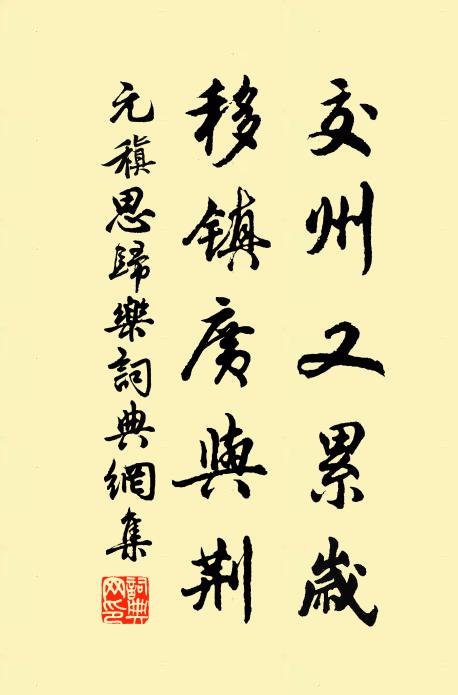 交州又累歲
移鎮廣與荆
元稹思歸樂詞典網集
詞典網印